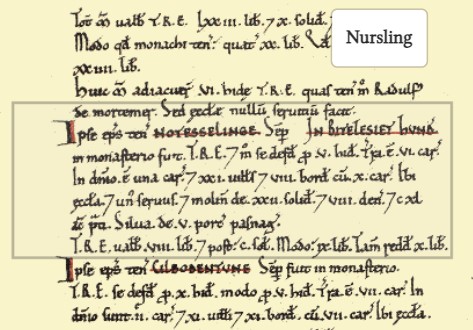 Toť m̄ ualb T.R.E. lxxiii. lib. 7 x. solid.
Nursling
Modo qđ monachi teń. quať xx. lib.
lib.
Huic m̄ adiacueř. vi. hidę T.R.E. quas teń m̄ Radulf'
de mortemer. Sed ęcclæ nullū seruitiū facit.
Ipse eps̄ teń NOTESSELINGE. Sēp IN BITELESIET HVND.
in monasterio fuit. T.R.E. 7 m̄ se defđ p̱ v. hiđ. Tr̄a. ē. vi. car̄.
In dn̄io. ē una car̄. 7 xxi. uiłłs 7 viii. borđ cū. x. car̄. Ibi
ęccła. 7 un' seruus. 7 moliń de. xxv. soliđ. 7 viii. deń. 7 cxl
ac̄ p̄ti. Silua. de. v. porc̄ pasnağ.
T.R.E. ualb̄. viii. lib̄. 7 post. c. sol. Modo. x. lib. Tam̄ redđ. x. lib.
Ipse eps̄ teń CILBODENTVNE Sēp fuit in monasterio.
T.R.E. se defđ p̱. x. hiđ. modo p̱ v. hiđ. Tr̄a. ē. vii. car̄. In
dn̄io sunt. ii. car̄. 7 xi. uiłłi 7 xi. borđ. cū. vi. car̄. Ibi ęccła.